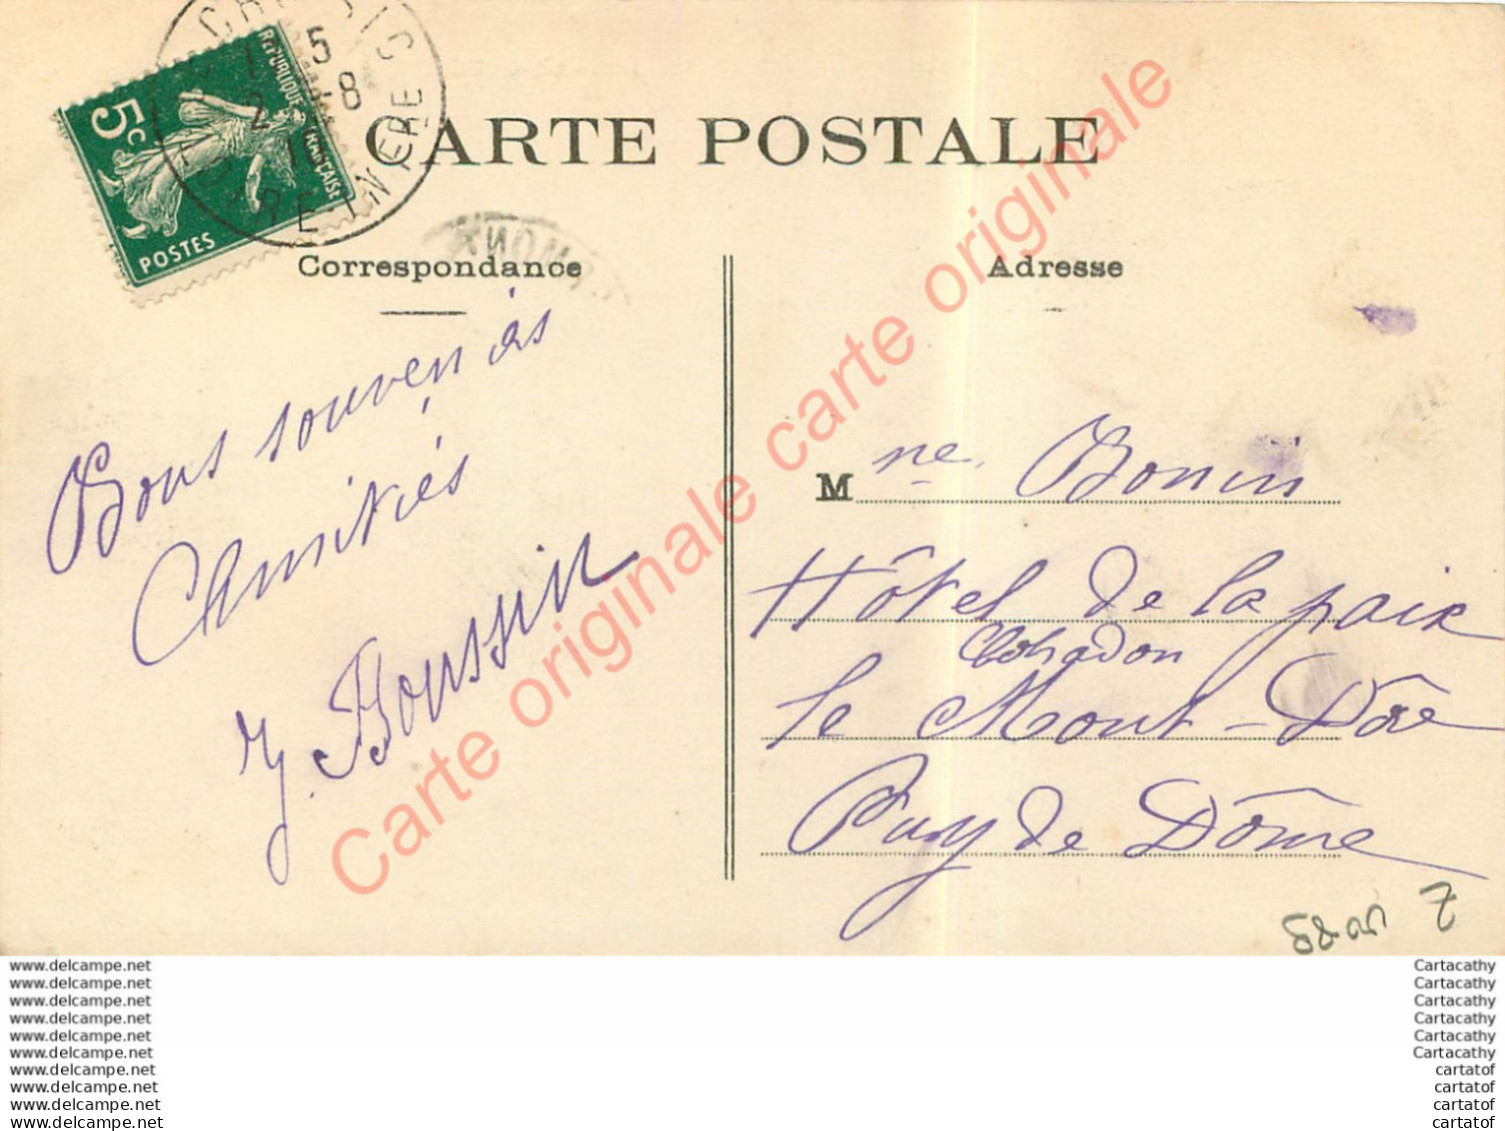 5c
REPUBLIQUE FRANÇAISE
POSTES
15 -8
LOIRE INFERE
CARTE POSTALE
Correspondance
Adresse
Bons souvenirs
Amitiés
J. Boussin
Mme Bonin
Hôtel de la paix
le Mont-Dore
Puy de Dôme
Carte originale carte originale
Carte originale carte originale
www.delcampe.net
www.delcampe.net
www.delcampe.net
www.delcampe.net
www.delcampe.net
www.delcampe.net
www.delcampe.net
www.delcampe.net
www.delcampe.net
www.delcampe.net
Cartacathy
Cartacathy
Cartacathy
Cartacathy
Cartacathy
Cartacathy
cartatof
cartatof
cartatof
cartatof